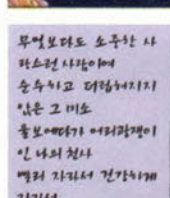 무엇보다도 소중한 사
랑스런 사람이여
순수하고 더럽혀지지
않은 그 미소
울보에다가 어리광쟁이
인 나의 천사
빨리 자라서 건강하게